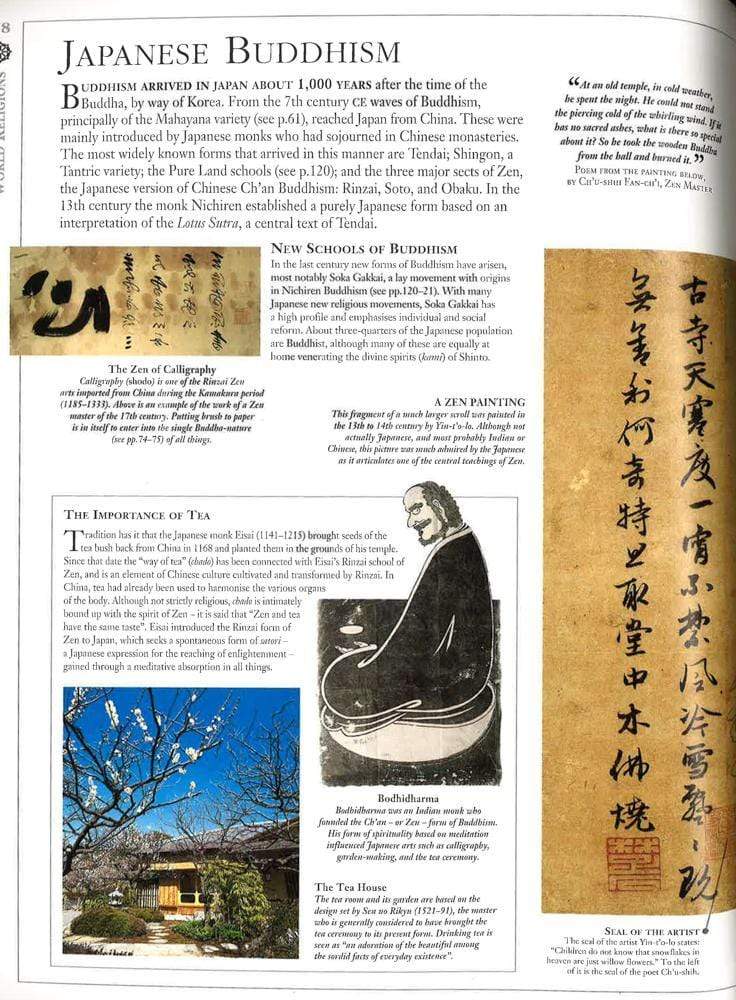 8
WORLD RELIGIONS
JAPANESE BUDDHISM
BUDDHISM ARRIVED IN JAPAN ABOUT 1,000 YEARS after the time of the
Buddha, by way of Korea. From the 7th century CE waves of Buddhism,
principally of the Mahayana variety (see p.61), reached Japan from China. These were
mainly introduced by Japanese monks who had sojourned in Chinese monasteries.
The most widely known forms that arrived in this manner are Tendai; Shingon, a
Tantric variety; the Pure Land schools (see p.120); and the three major sects of Zen,
the Japanese version of Chinese Ch'an Buddhism: Rinzai, Soto, and Obaku. In the
13th century the monk Nichiren established a purely Japanese form based on an
interpretation of the Lotus Sutra, a central text of Tendai.
“At an old temple, in cold weather,
he spent the night. He could not stand
the piercing cold of the whirling wind. If it
has no sacred ashes, what is there so special
about it? So he took the wooden Buddha
from the hall and burned it.”
POEM FROM THE PAINTING BELOW,
BY CH'U-SHIH FAN-CH'I, ZEN MASTER
NEW SCHOOLS OF BUDDHISM
In the last century new forms of Buddhism have arisen,
most notably Soka Gakkai, a lay movement with origins
in Nichiren Buddhism (see pp.120–21). With many
Japanese new religious movements, Soka Gakkai has
a high profile and emphasises individual and social
reform. About three-quarters of the Japanese population
are Buddhist, although many of these are equally at
home venerating the divine spirits (kami) of Shinto.
The Zen of Calligraphy
Calligraphy (shodo) is one of the Rinzai Zen
arts imported from China during the Kamakura period
(1185–1333). Above is an example of the work of a Zen
master of the 17th century. Putting brush to paper
is in itself to enter into the single Buddha-nature
(see pp.74–75) of all things.
A ZEN PAINTING
This fragment of a much larger scroll was painted in
the 13th to 14th century by Yin-t'o-lo. Although not
actually Japanese, and most probably Indian or
Chinese, this picture was much admired by the Japanese
as it articulates one of the central teachings of Zen.
古寺天寒度一宵不禁風冷雪飄〻既
無舎利何奇特且取堂中木佛燒
THE IMPORTANCE OF TEA
Tradition has it that the Japanese monk Eisai (1141–1215) brought seeds of the
tea bush back from China in 1168 and planted them in the grounds of his temple.
Since that date the “way of tea” (chado) has been connected with Eisai's Rinzai school of
Zen, and is an element of Chinese culture cultivated and transformed by Rinzai. In
China, tea had already been used to harmonise the various organs
of the body. Although not strictly religious, chado is intimately
bound up with the spirit of Zen – it is said that “Zen and tea
have the same taste”. Eisai introduced the Rinzai form of
Zen to Japan, which seeks a spontaneous form of satori –
a Japanese expression for the reaching of enlightenment –
gained through a meditative absorption in all things.
Bodhidharma
Bodhidharma was an Indian monk who
founded the Ch'an – or Zen – form of Buddhism.
His form of spirituality based on meditation
influenced Japanese arts such as calligraphy,
garden-making, and the tea ceremony.
The Tea House
The tea room and its garden are based on the
design set by Sen no Rikyu (1521–91), the master
who is generally considered to have brought the
tea ceremony to its present form. Drinking tea is
seen as “an adoration of the beautiful among
the sordid facts of everyday existence”.
SEAL OF THE ARTIST
The seal of the artist Yin-t'o-lo states:
“Children do not know that snowflakes in
heaven are just willow flowers.” To the left
of it is the seal of the poet Ch'u-shih.